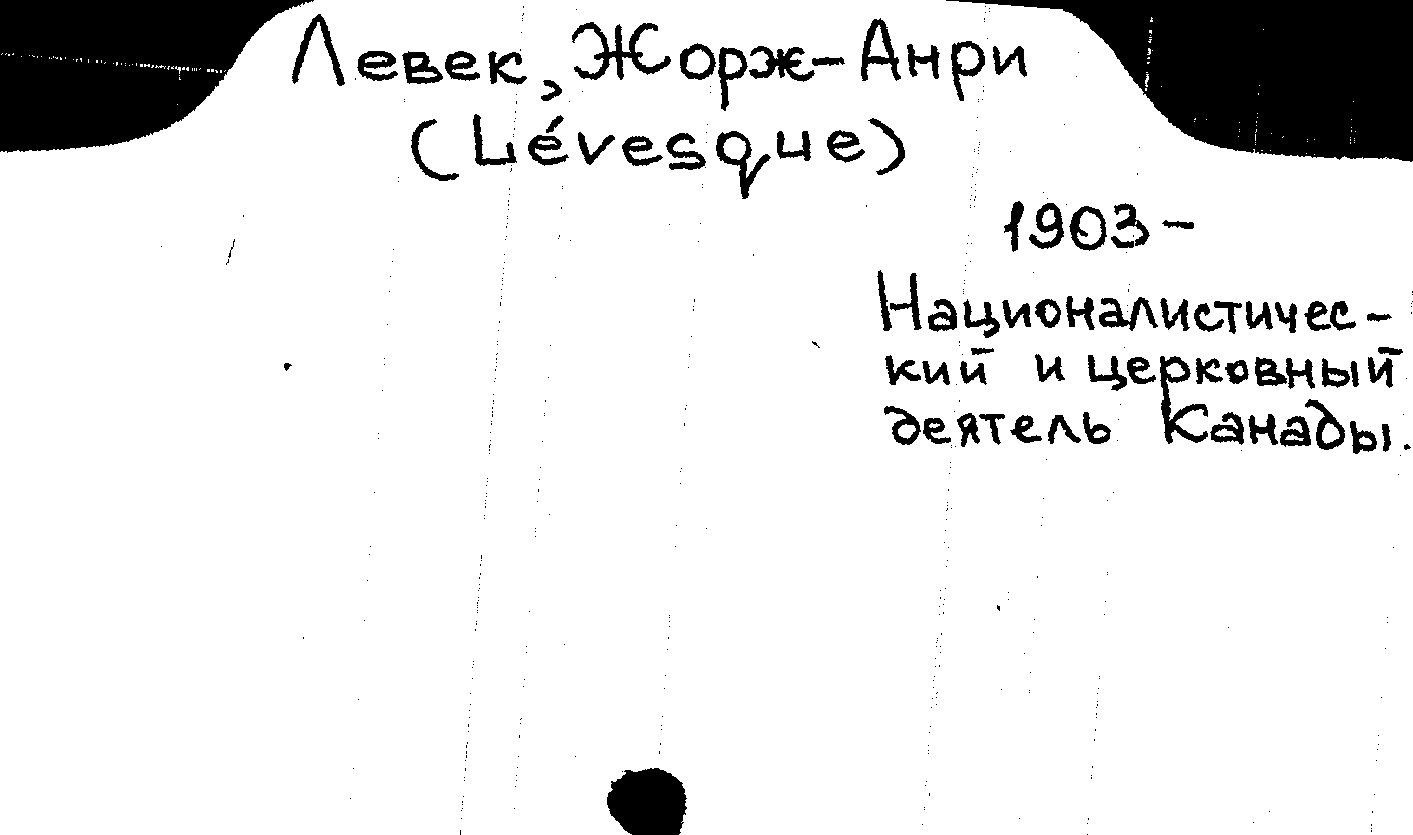 Левек, Жорж-Анри
(Lévesque)
1903-
Националистичес-
кий и церковный
деятель Канады.